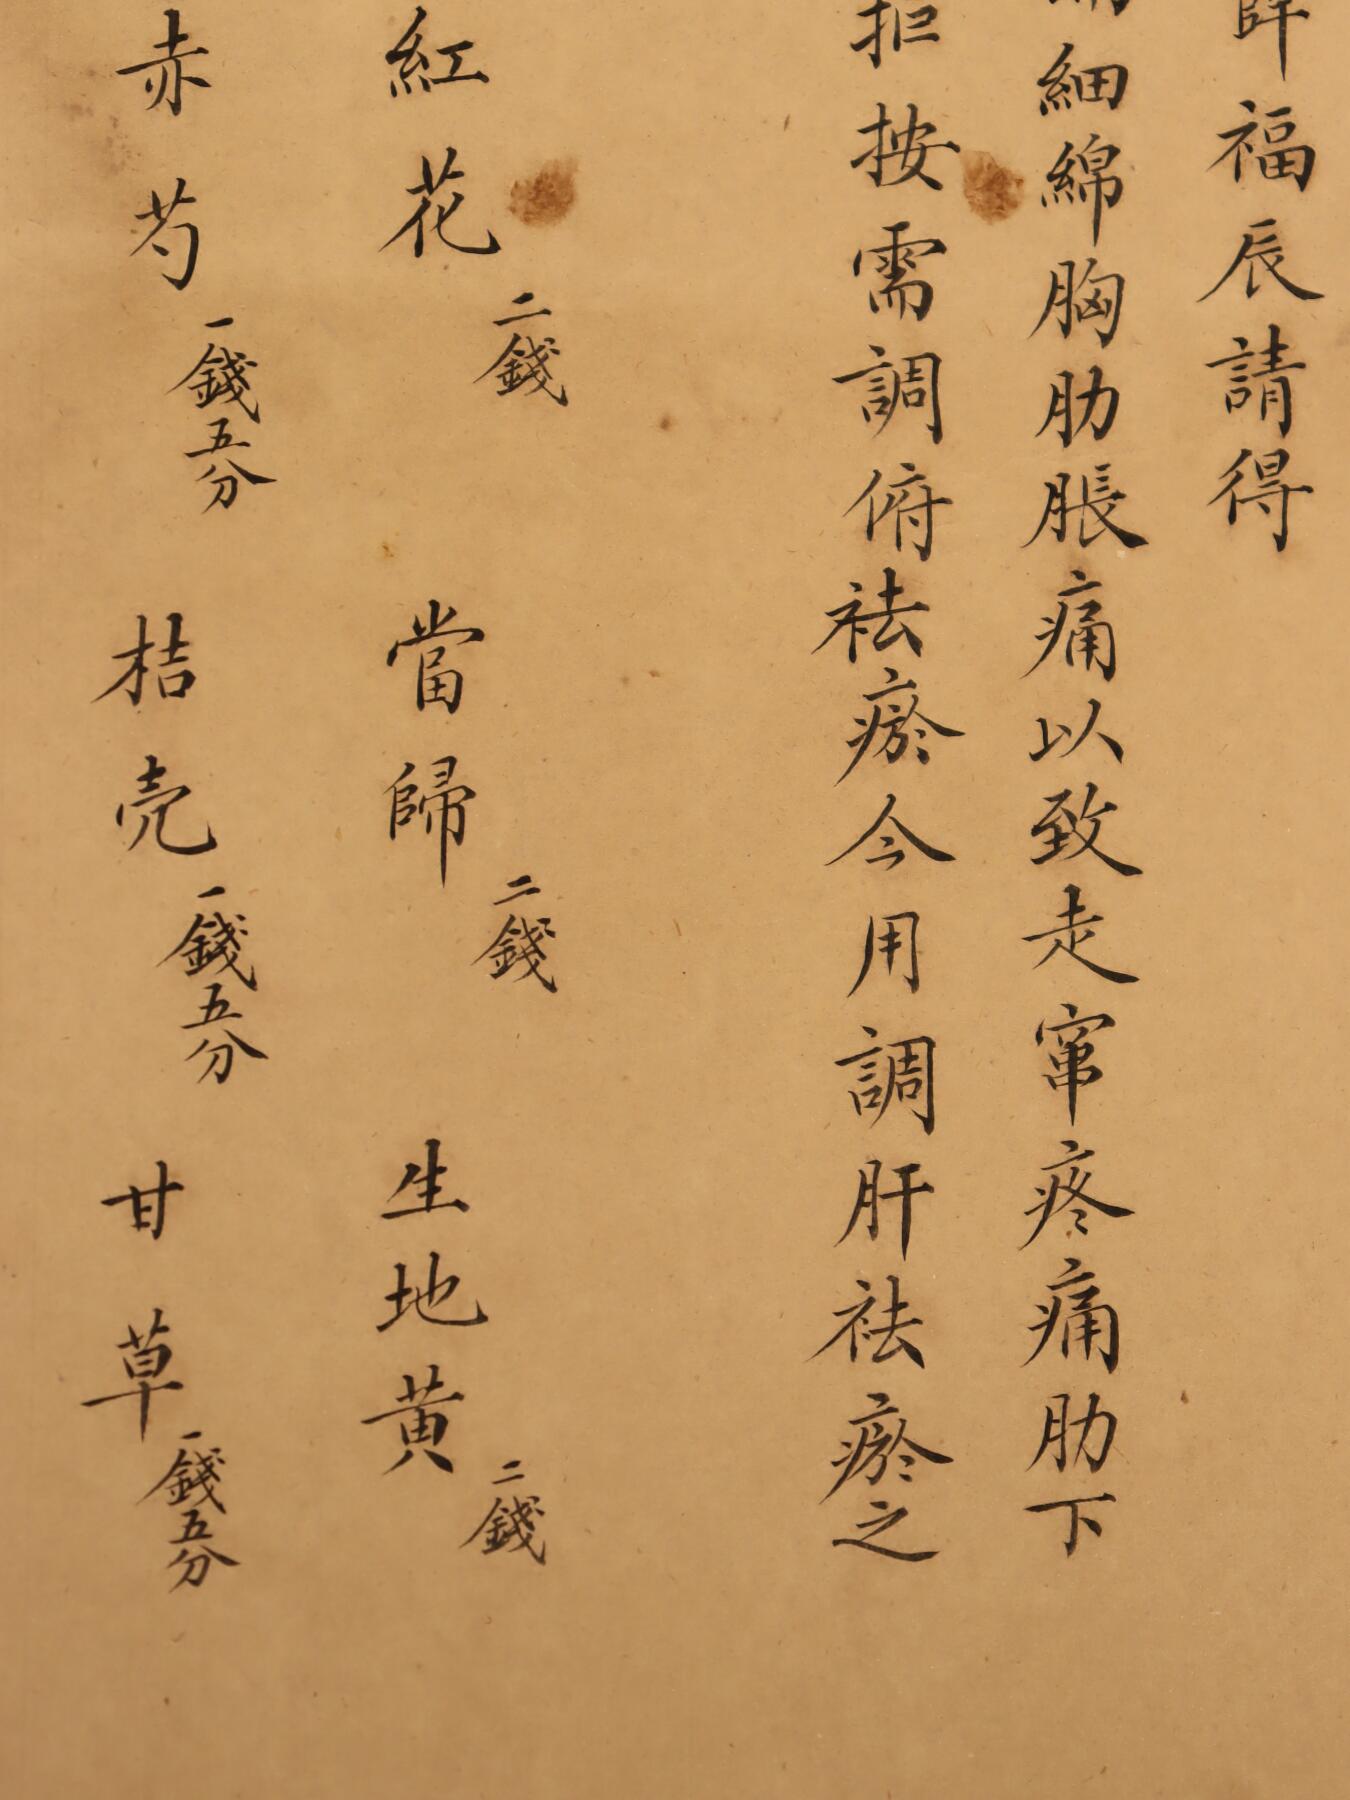 福辰請得
細綿胸肋脹痛以致走窜疼痛肋下
拒按需調俯祛瘀今用調肝祛瘀之
紅花 二錢 當歸 二錢 生地黄 二錢
赤芍 一錢五分 桔壳 一錢五分 甘草 一錢五分